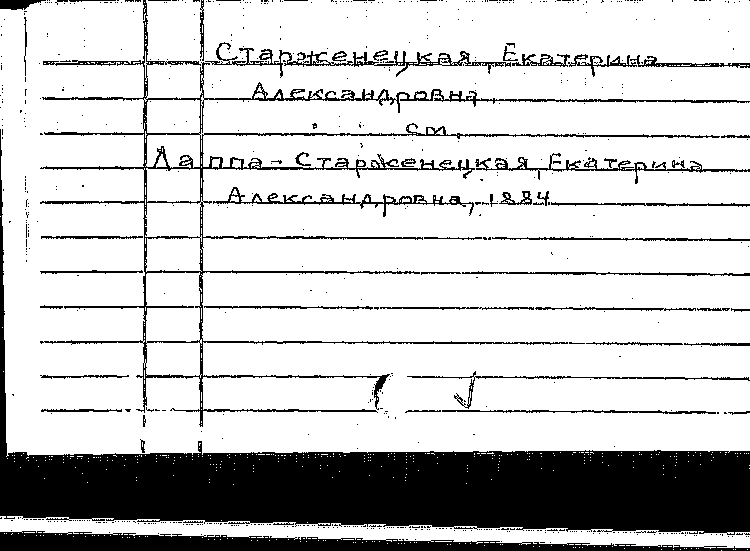 Старженецкая, Екатерина
Александровна,
см.
Лаппа-Старженецкая, Екатерина
Александровна, 1884